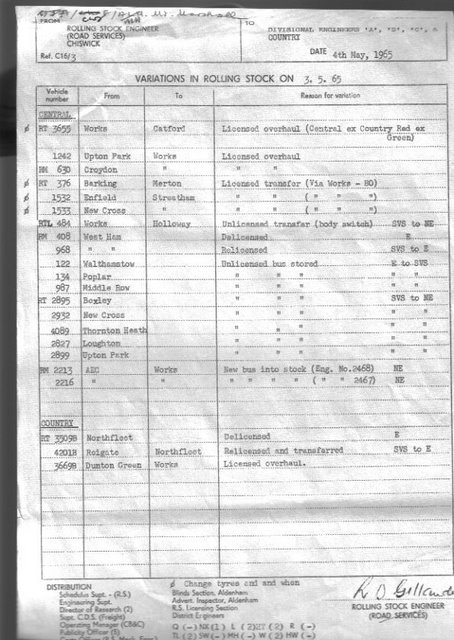 FROM
ROLLING STOCK ENGINEER
(ROAD SERVICES)
CHISWICK
Ref. C16/3
TO
DIVISIONAL ENGINEERS 'A', 'B', 'C', &
COUNTRY
DATE 4th May, 1965
VARIATIONS IN ROLLING STOCK ON 3. 5. 65
Vehicle number From To Reason for variation
CENTRAL
ø RT 3655 Works Catford Licensed overhaul (Central ex Country Red ex
Green)
1242 Upton Park Works Licensed overhaul
RM 630 Croydon " " "
ø RT 376 Barking Merton Licensed transfer (Via Works - BO)
ø 1532 Enfield Streatham " " ( " " " )
ø 1533 New Cross " " " ( " " " )
RTL 484 Works Holloway Unlicensed transfer (body switch) SVS to NE
RM 408 West Ham Delicensed E
968 " " Relicensed SVS to E
122 Walthamstow Unlicensed bus stored E to SVS
134 Poplar " " " " "
987 Middle Row " " " " "
RT 2895 Boxley " " " SVS to NE
2932 New Cross " " " " "
4089 Thornton Heath " " " " "
2827 Loughton " " " " "
2899 Upton Park " " " " "
RM 2213 AEC Works New bus into stock (Eng. No.2468) NE
2216 " " " " " " ( " " 2467) NE
COUNTRY
RT 3509B Northfleet Delicensed E
4201B Reigate Northfleet Relicensed and transferred SVS to E
3669B Dunton Green Works Licensed overhaul.
ø Change tyres on and when
DISTRIBUTION
Schedules Supt. - (R.S.)
Engineering Supt.
Director of Research (2)
Supt. C.D.S. (Freight)
Operating Manager (CB&C)
Publicity Officer (5)
Blinds Section, Aldenham
Advert. Inspector, Aldenham
R.S. Licensing Section
District Engineers
ROLLING STOCK ENGINEER
(ROAD SERVICES)